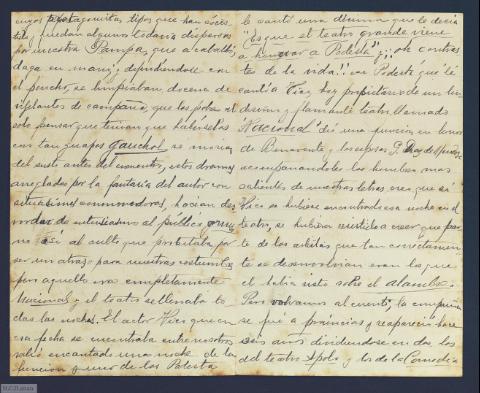 cuyos protagonistas, tipos que han exis-
tido y quedan algunos todavia dispersos
por nuestra Pampa, que a caballo
daga en mano y defendiendose con
el poncho, se limpiaban docena de
vigilantes de campaña, que los pobres al
solo pensar que tenian que habérselas
con tan guapos gauchos se morian
del susto antes del encuentro, estos dramas
arreglados por la fantasia del autor con
situaciones conmovedoras, hacian des-
bordar de entusiasmo al público
asi al culto que protestaba por
ser un atraso para nuestras costumbres
pero aquello era completamente
Nacional y el teatro se llenaba to
das las noches. El actor Vico que en
esa fecha se encontraba entre nosotros
salió encantado una noche de la
funcion y uno de los Podestá
le cantó una décima que le decia
"Es que el teatro grande viene
a honrar a Podestá"¡¡¡oh contras
tes de la vida!! ese Podestá que le
cantó a Vico, hoy propietario de un her
y flamante teatro llamado
"Nacional" dió una funcion en honor
de Benavente y los esposos G. Diaz de Mendoza
acompañandole los hombres mas
salientes de nuestras letras, creo que si
Vico se hubiese encontrado esa noche en el
teatro, se hubiera resistido a creer que par
te de los artistas que tan correctamen
te se desenvolvian eran los que
el habia visto sobre el
Pero volvamos al cuento, la compañia
se fué a provincias y reapareció hace
seis años dividiendose en dos los
del teatro Apolo y los de la Comedia
MCD 2022